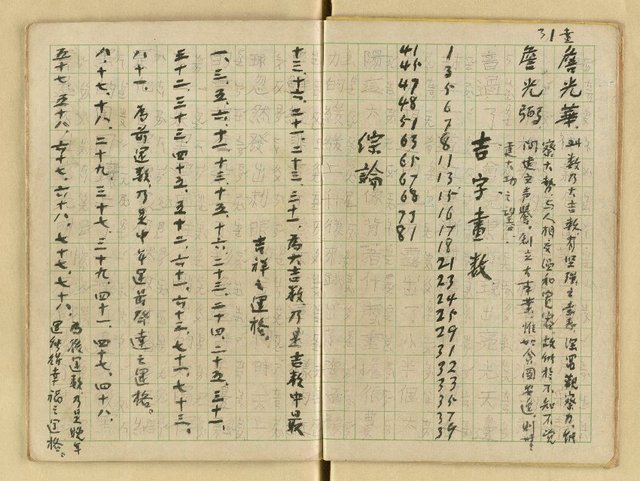 31畫
詹光華
詹光弼
此数乃大吉数、有堅強之素養、深富觀察力、能
察大勢、与人相交溫和寬容、故術於不知不覚
間建立声譽、創立大事業、
建大功之望者。
吉字畫数
1
3
5
6
7
8
11
13
15
16
17
18
21
23
23
24
25
29
31
32
33
35
37
39
41
45
47
48
51
63
65
67
68
73
81
綜論
十三、十六、二十一、二十三、三十一、為大吉数、乃是吉数中最
吉祥之運格。
一、三、五、六、十一、十三、十五、十六、二十三、二十四、二十五、三十一、
三十二、三十三、四十五、五十二、六十一、六十三、七十一、七十三、
八十一、為前運数、乃是中年運最發達之運格。
八、十七、十八、二十九、三十七、三十九、四十一、四十七、四十八、
五十七、五十八、六十七、六十八、七十七、七十八、
為後運数、乃是晚年
運能得幸福之運格。